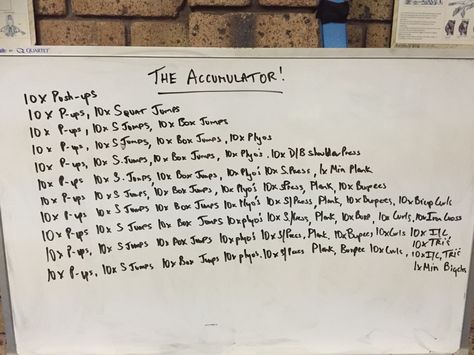 by QUARTET
THE ACCUMULATOR!
10x Push-ups
10x P-ups, 10x SQUAT JUMPS
10x P-ups, 10x S JUMPS, 10x BOX JUMPS
10x P-ups, 10x S.JUMPS, 10x BOX JUMPS, 10x Plyos
10x P-ups, 10x S.JUMPS, 10x BOX JUMPS, 10x Plyo's. 10x D/B Shoulder Press
10x P-ups, 10x S. JUMPS, 10x BOX JUMPS, 10x Plyo's 10x S.Press, 1x Min Plank
10x P-ups, 10x S JUMPS, 10x Box JUMPS, 10x Plyo's 10x S.Press, Plank, 10x Burpees
10x P-ups, 10x S JUMPS 10x Box JUMPS 10x Plyo's, 10x S/Press, Plank, 10x Burpees, 10x Bicep Curls
10x P-ups, 10x S JUMPS 10x Box JUMPS 10x plyo's 10x S/Press, Plank, 10x Burp, 10x Curls, 10x Iron Cross
10x P-ups, 10x S JUMPS 10x Box JUMPS 10x plyo's 10x S/Press, Plank, 10x Burpees, 10x Curls 10x I/C 10x TRI's
10x P-ups, 10x S JUMPS 10x Box JUMPS 10x plyos. 10x S/Press Plank, Burpee 10x Curls, 10x I/C, TRI's
1x Min Bicycles